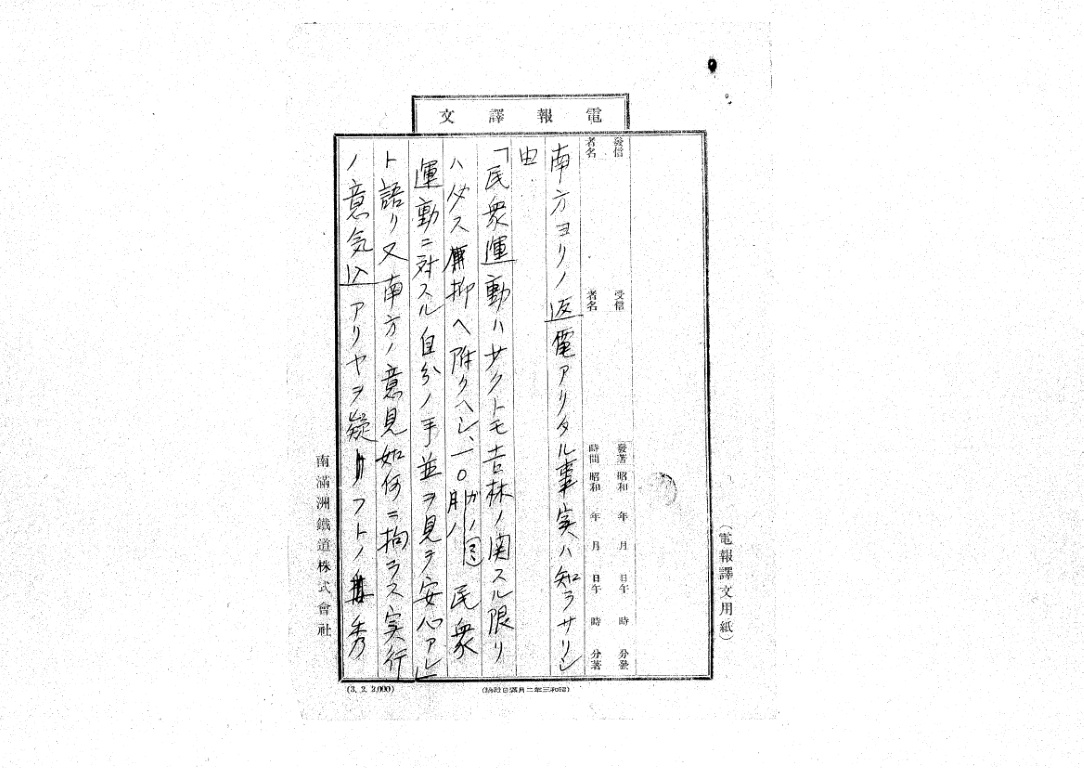 電報譯文
(電報譯文用紙)
發信者名
受信者名
發著時間
昭和 年 月 日 午 時 分發
昭和 年 月 日 午 時 分著
南方ヨリノ返電アリタル事実ハ知ラサリシ
由
「民衆運動ハサクトモ吉林ノ関スル限リ
ハ 抑ヘ附クヘシ、一〇月ノ 民衆
運動ニ対スル自分ノ手並ヲ見ヲ安心アレ」
ト語リ又南方ノ意見如何ニ拘ラス実行
ノ意気込アリヤヲ疑フトノ 秀
南滿洲鐵道株式會社
(3. 2. 2,000)